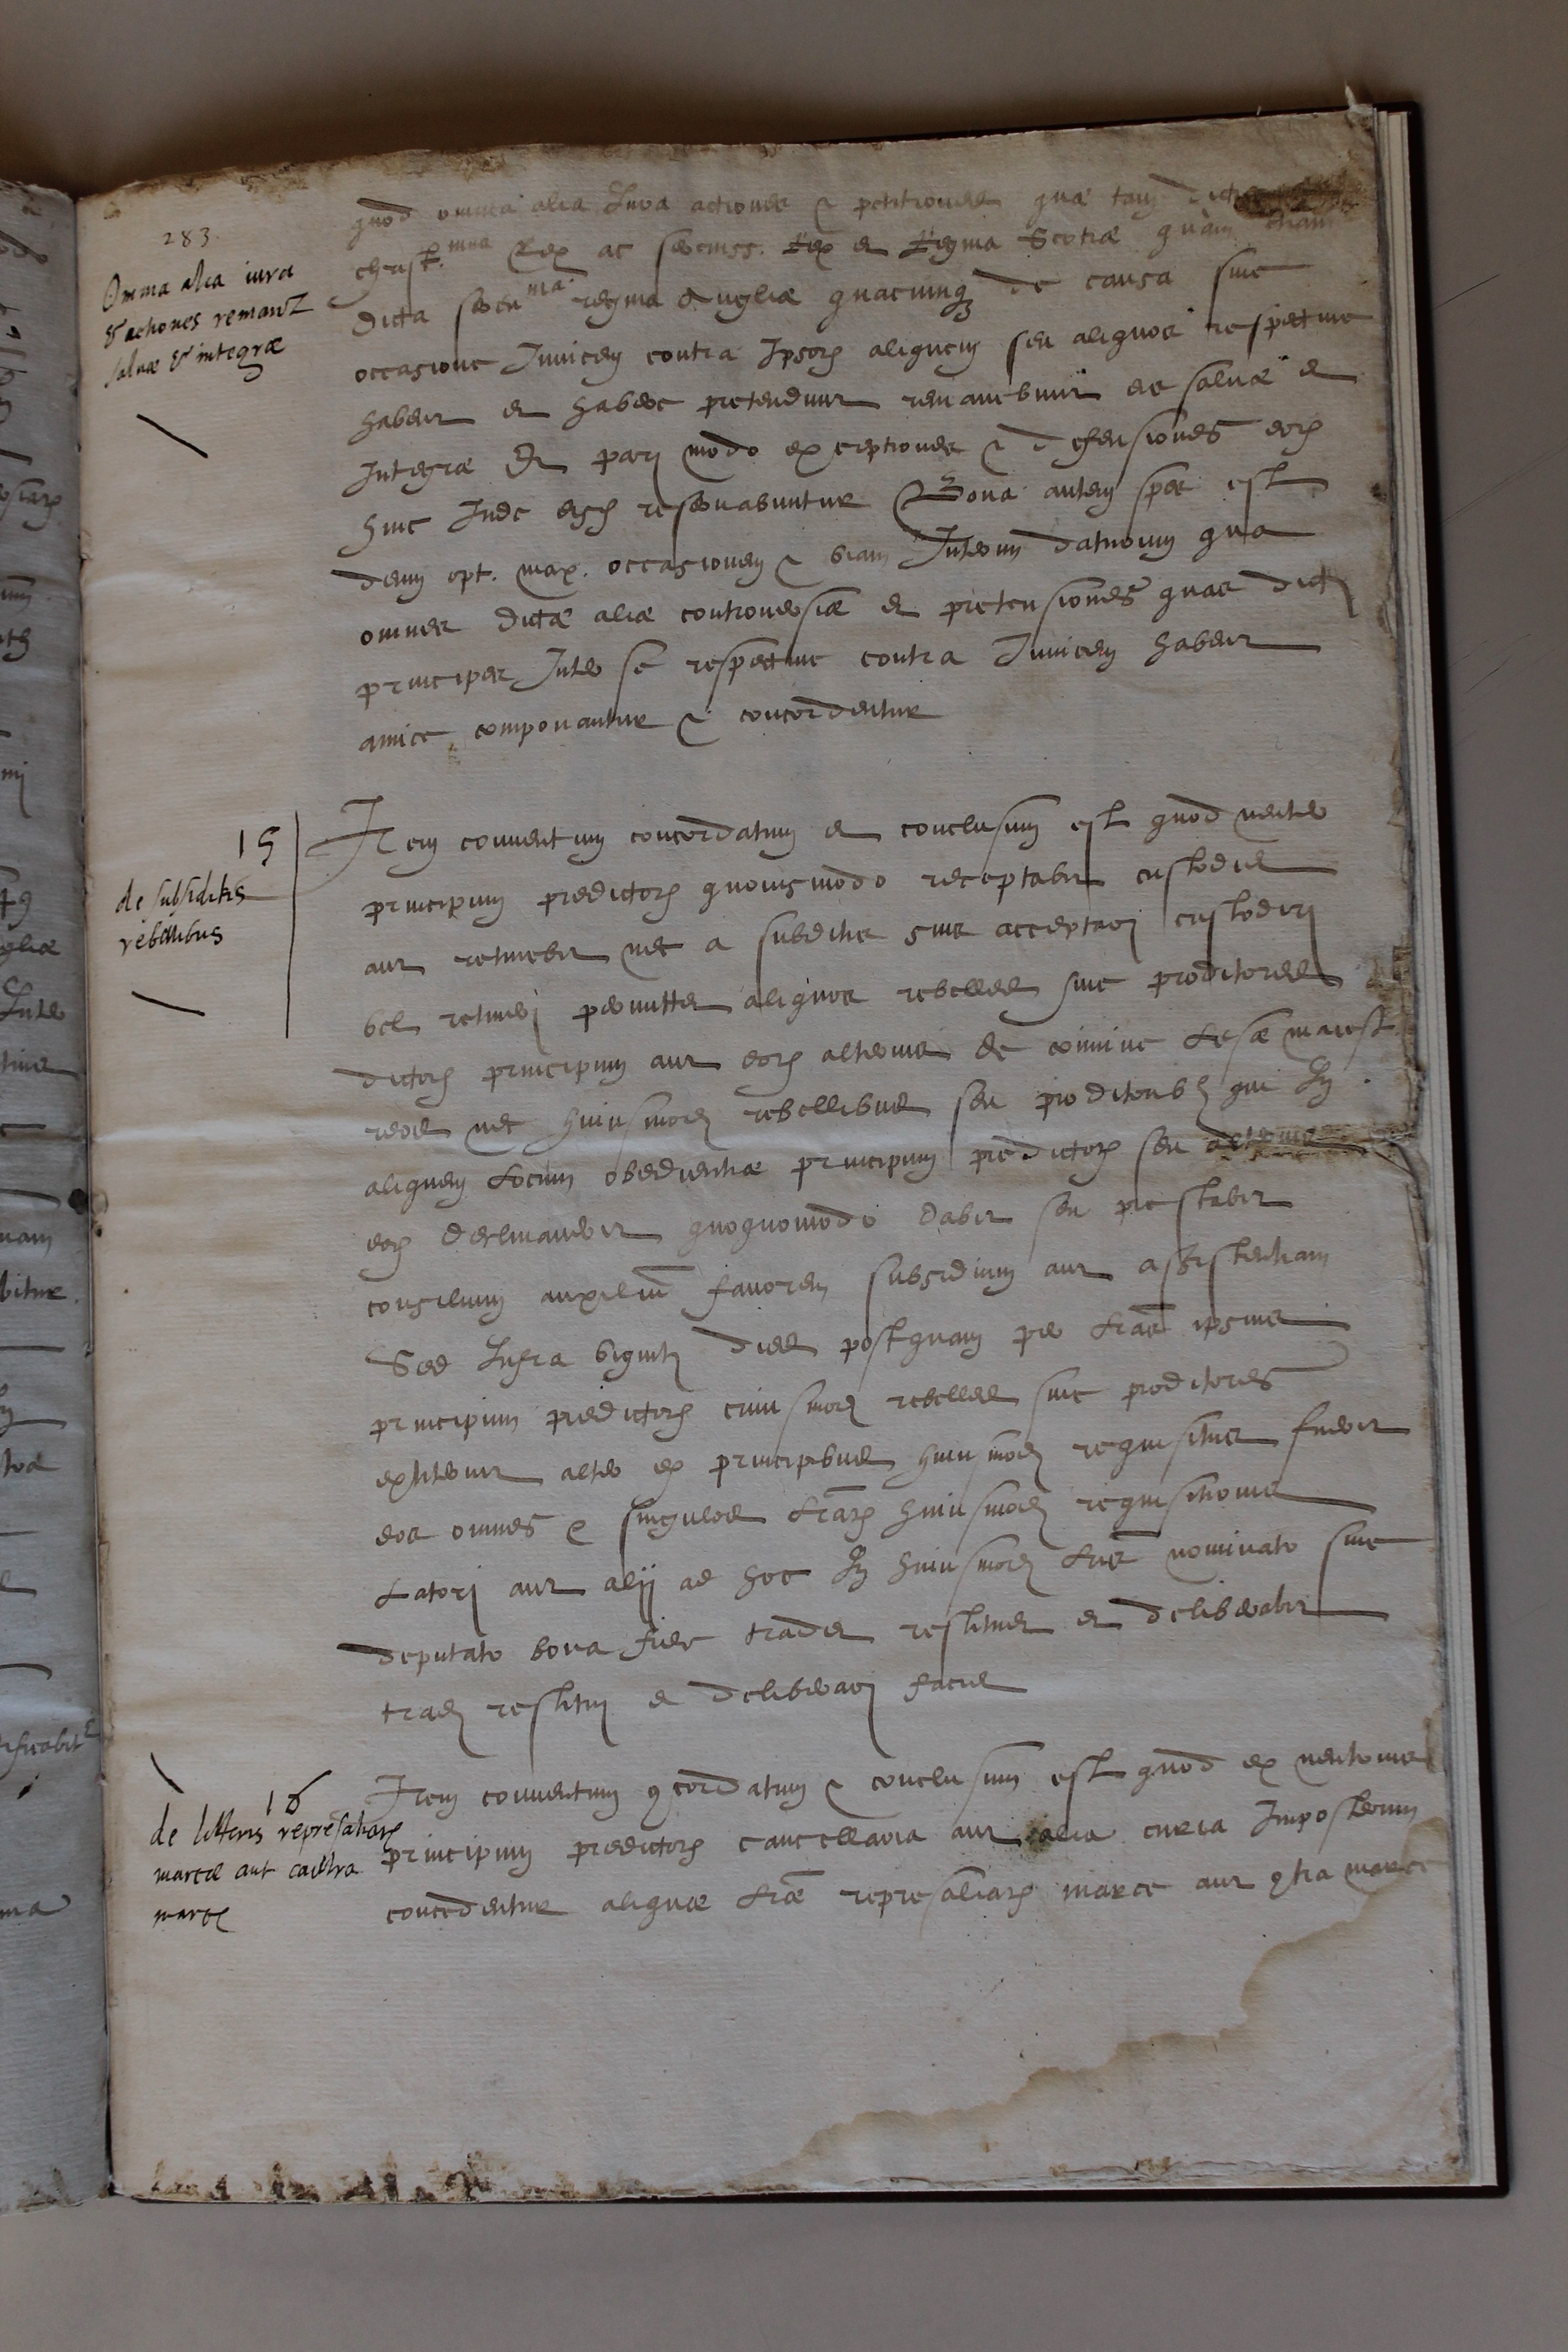 283.
Omnia alia iura
& actiones remanẽt
saluæ & integræ
quod omnia alia Iura actiones & petitiones quæ tam dictus
christ.mus Rex ac sereniss. Rex et Regina Scotiæ quàm etiam
dicta seren.ma regina Angliæ quacunq de causa siue
occasione Inuicem contra Ipsorũ aliquem seu aliquos respectiue
habent et habere pretendunt remanebunt eis saluæ et
Integræ Et pari modo exceptiones & defensiones eorũ
hinc Inde eisdẽ reseruabuntur Bona autem spes est
deum opt. max. occasionem & viam Interim daturum qua
omnes dictæ aliæ controuersiæ et pretensiones quas dictj
principes Inter se respectiue contra Inuicem habent
amice componantur & concordentur
15
de subsiditis
rebellibus
Item conuentum concordatum et conclusum est quod neuter
principum predictorũ quouismodo receptabit custodiet
aut retinebit nec a subditis suis acceptarj custodirj
vel retinerj permittet aliquos rebelles siue proditores
dictorũ principum aut eorũ alterius de crimine Lesæ maiest.
reos nec huiusmodj rebellibus seu proditoribʒ qui In
aliquem Locum obedientiæ principum predictorũ seu alterius
eorũ declinauerit quoquomodo dabit seu prestabit
consilium auxiliũ fauorem subsidium aut assistentiam
Sed Infra vigintj dies postquam per Lr̃as ipsius
principum predictorũ cuiusmodj rebelles siue proditores
extiterint alter ex principibus huiusmodj requisitus fuerit
eos omnes & singulos Lr̃arũ huiusmodj requisitionis
Latorj aut alij ad hoc In huiusmodj Lr̃is nominato siue
deputato bona fide tradet restituet et deliberabit
tradj restituj et deliberarj faciet
16
de litteris represaliarũ
marcæ aut cõtra
marcę
Item conuentum 9cordatum & conclusum est quod ex neutrius
principum predictorũ cancellaria aut alia curia Imposterum
concedentur aliquæ Lr̃æ represaliarũ marce aut 9tra marce